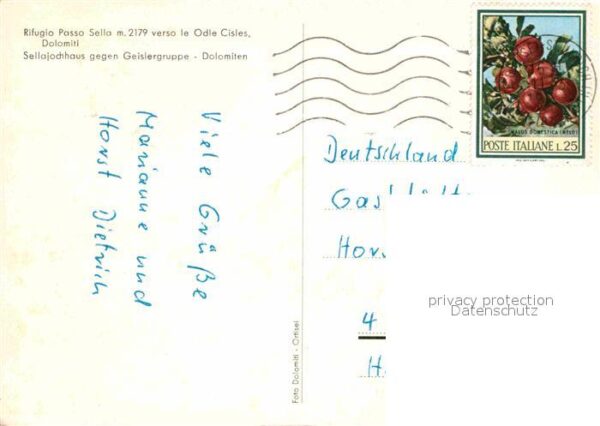 Rifugio Passo Sella m. 2179 verso le Odle Cisles,
Dolomiti
Sellajochhaus gegen Geislergruppe - Dolomiten
Viele Grüße
Marianne und
Horst Dietrich
Foto Dolomiti - Ortisei
MALUS DOMESTICA (MELO)
POSTE ITALIANE L.25
Deutschland
4
privacy protection
Datenschutz